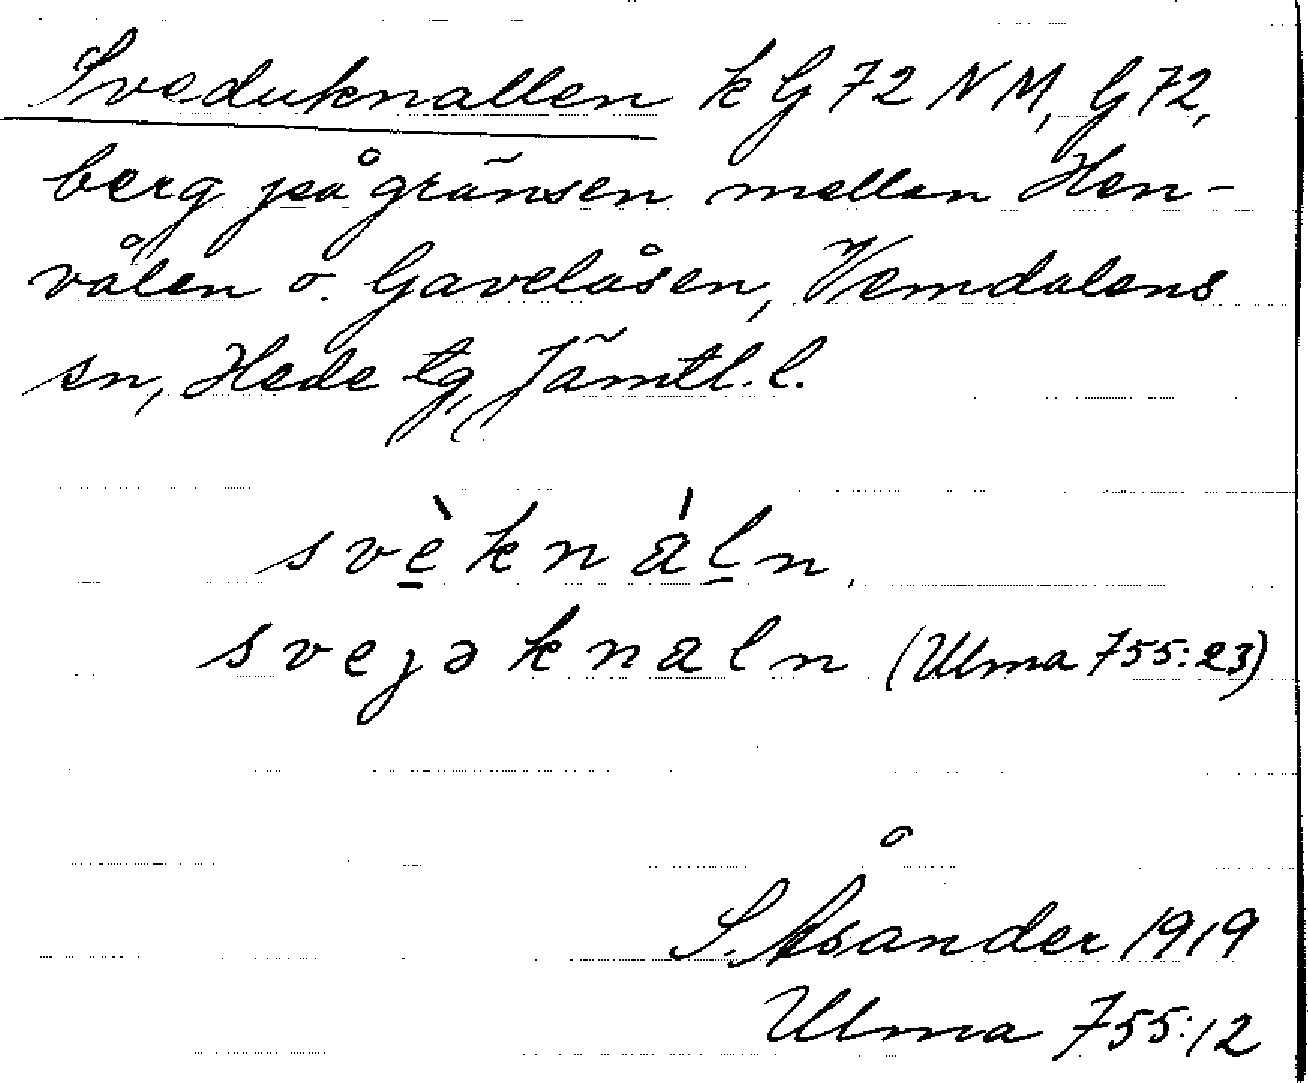 Sveduknallen k G 72 NM, G 72,
berg på gränsen mellan Hen-
vålen o. Gavelåsen, Vemdalens
sn, Hede tg, Jämtl. l.
svèknáln,
svejəknaln (Ulma 755:23)
S. Åsander 1919
Ulma 755:12